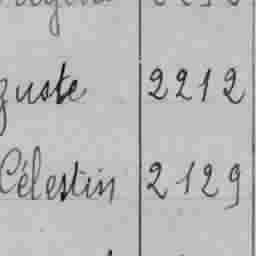 guste 2212
Célestin 2129